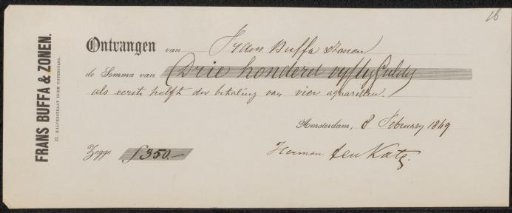 16
FRANS BUFFA & ZONEN.
Ontvangen van Frans Buffa & Zonen
de Somma van Drie honderd vyftig Gulden
als eerste helft der betaling van vier aquarellen.
Amsterdam, 8 February 1869
Zegge f 350.—
Herman ten Kate